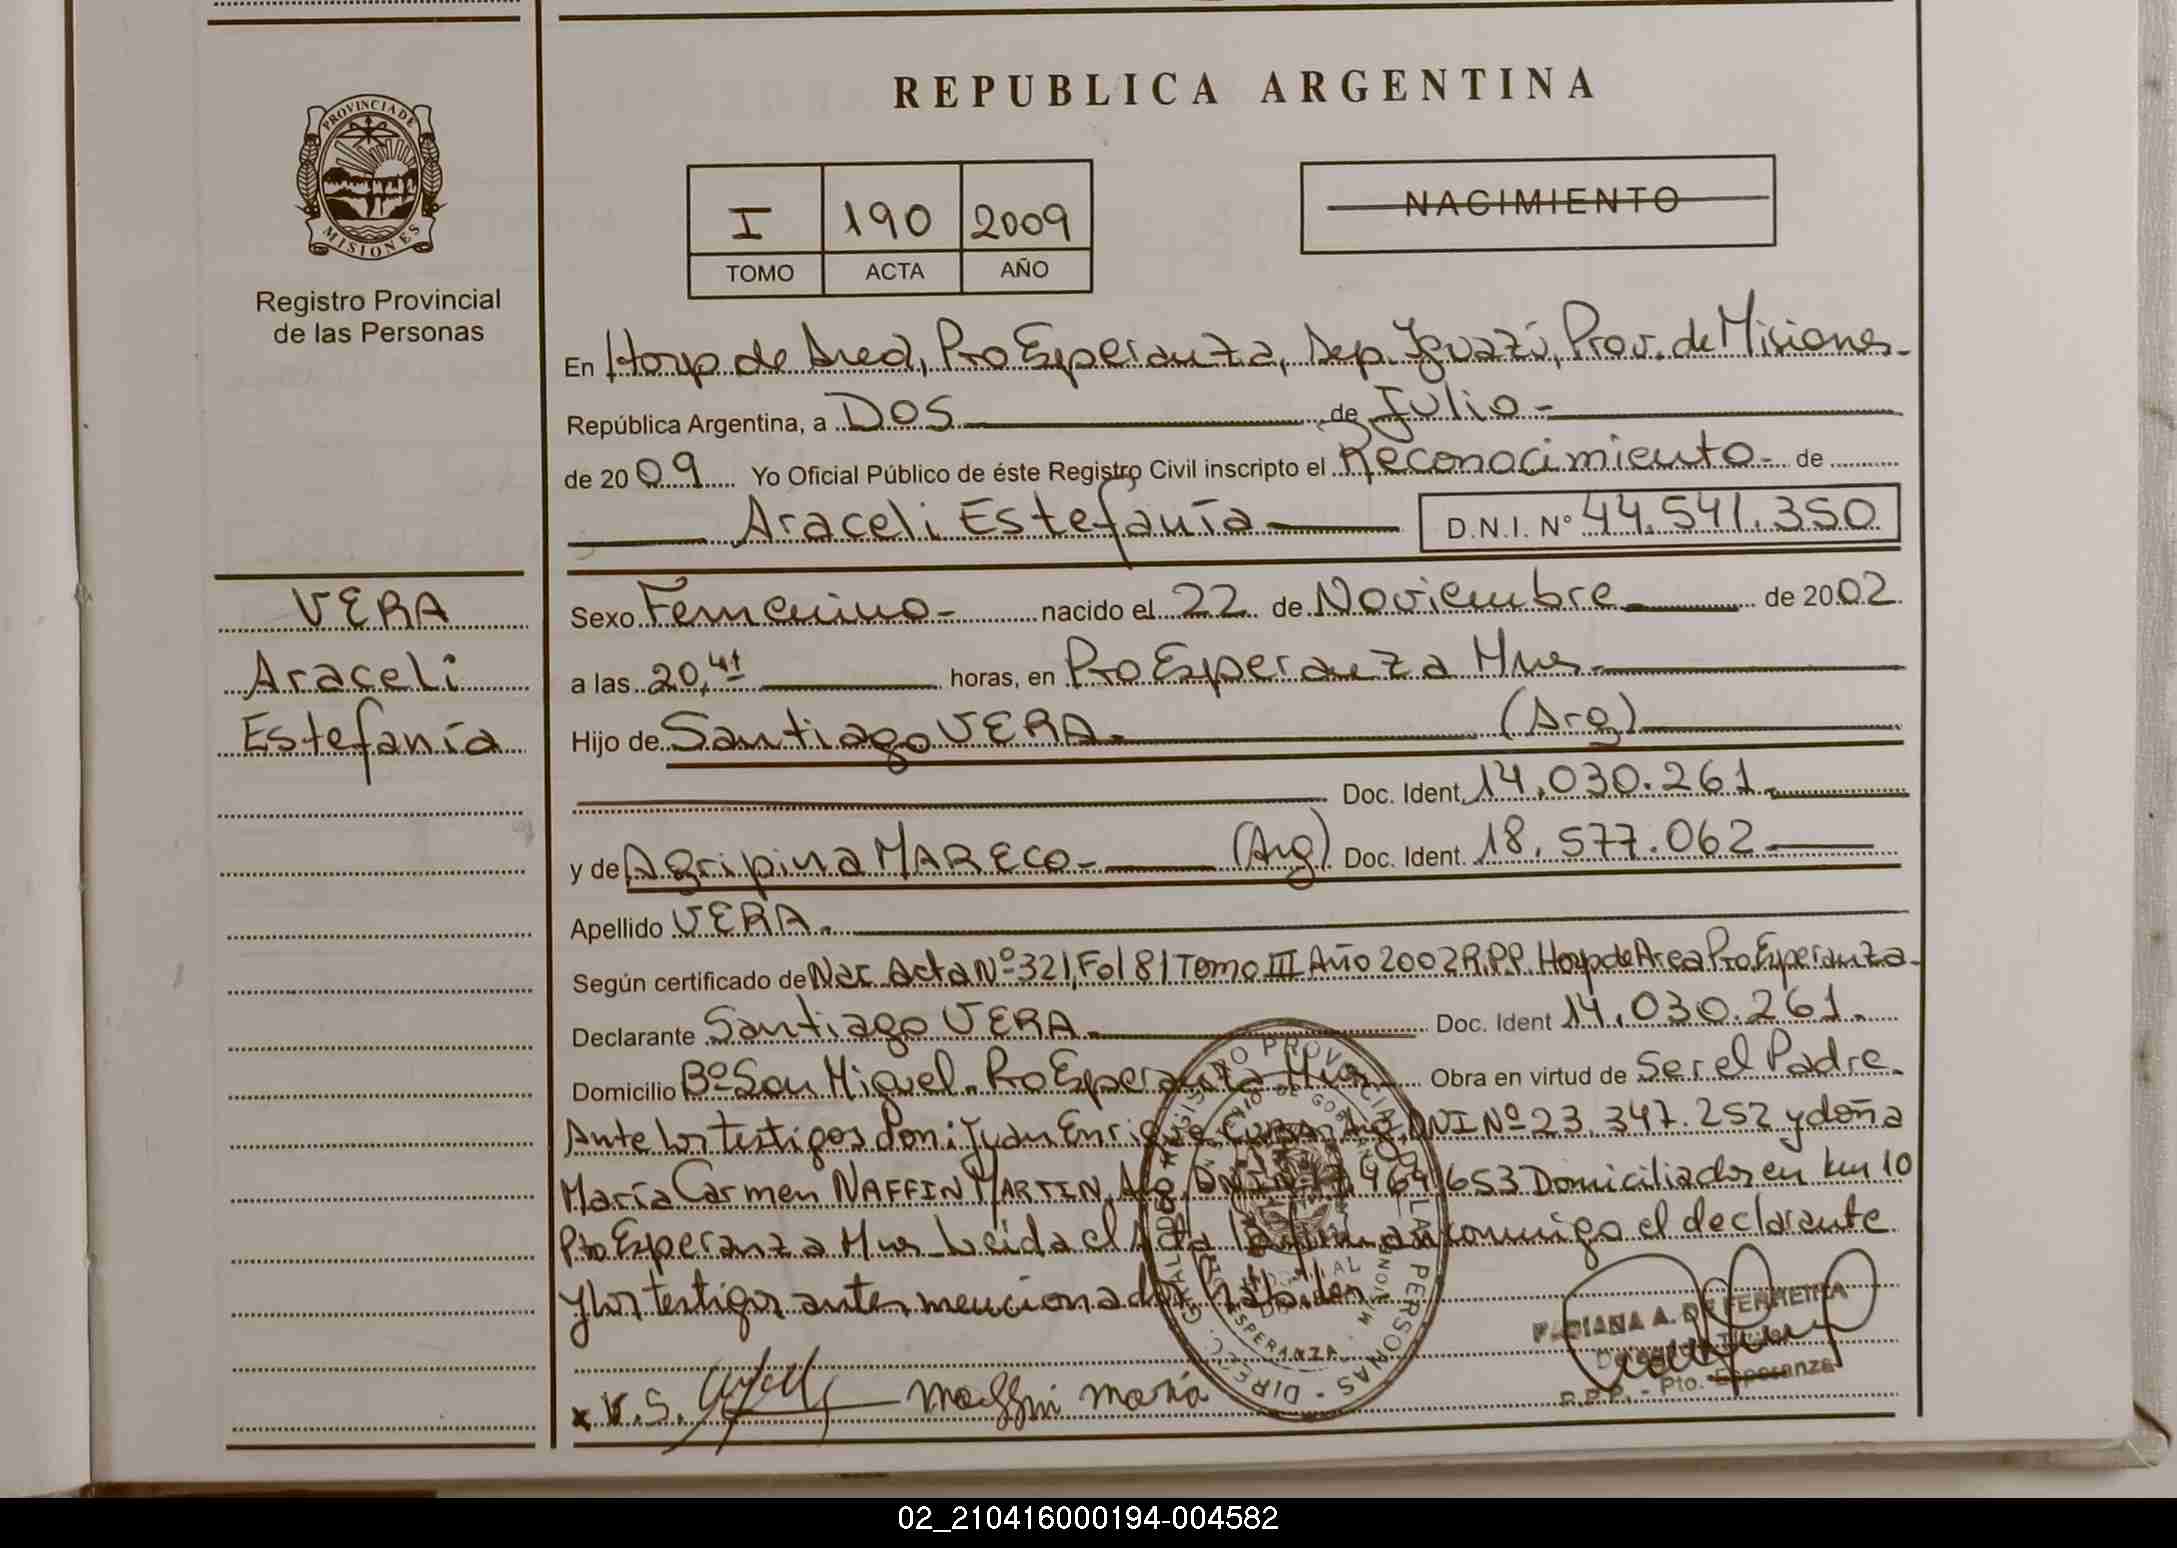 REPUBLICA ARGENTINA
PROVINCIA DE
MISIONES
Registro Provincial
de las Personas
I 190 2009
TOMO ACTA AÑO
NACIMIENTO
En Hosp de Area, Pto Esperanza, Dep. Iguazú, Prov. de Misiones.-
República Argentina, a DOS de Julio-
de 2009 Yo Oficial Público de éste Registro Civil inscripto el Reconocimiento- de
Araceli Estefanía D.N.I. Nº 44.541.350
VERA
Araceli
Estefanía
Sexo Femenino- nacido el 22 de Noviembre de 2002
a las 20,41 horas, en Pto Esperanza Mnes.
Hijo de Santiago VERA. (Arg)
Doc. Ident. 14.030.261
y de Agripina MARECO- (Arg) Doc. Ident. 18.577.062
Apellido VERA.
Según certificado de Nac. Acta Nº 321, Fol 81 Tomo III Año 2002 R.P.P. Hosp de Area Pto. Esperanza-
Declarante Santiago VERA Doc. Ident 14.030.261.
Domicilio Bº San Miguel. Pto Esperanza Mnes Obra en virtud de Ser el Padre.
Ante los testigos Don: Juan Enrique Arg. DNI Nº 23.347.252 y doña
María Carmen NAFFIN MARTIN, Arg, DNI Nº 653 Domiciliados en km 10
Pto Esperanza Mnes Leida el Acta la firman conmigo el declarante
y los testigos antes mencionados
FABIANA A. DE FERREIRA
R.P.P. - Pto. Esperanza
x V.S. Maffin María
DIREC. GRAL. REGISTRO PROVINCIAL DE LAS PERSONAS
ESPERANZA
02_210416000194-004582